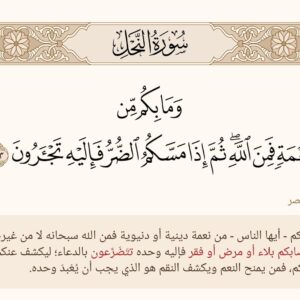 سُورَةُ النَّحْلِ
وَمَا بِكُم مِّن
نِّعْمَةٍ فَمِنَ ٱللَّهِ ۖ ثُمَّ إِذَا مَسَّكُمُ ٱلضُّرُّ فَإِلَيْهِ تَجْـَٔرُونَ
كم - أيها الناس - من نعمة دينية أو دنيوية فمن الله سبحانه لا من غير
صابكم بلاء أو مرض أو فقر فإليه وحده تتضَرَّعون بالدعاء؛ ليكشف عنك
كم، فمن يمنح النعم ويكشف النقم هو الذي يجب أن يُعْبَدَ وحده.